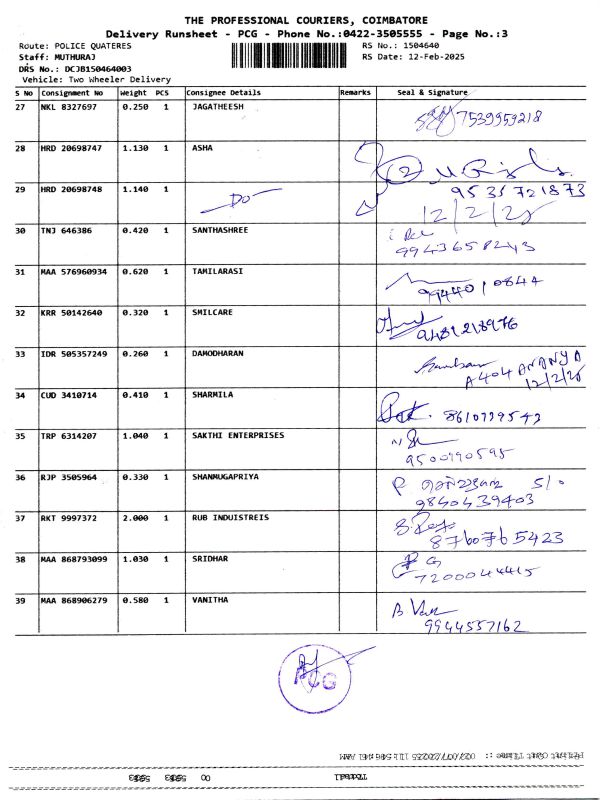 THE PROFESSIONAL COURIERS, COIMBATORE
Delivery Runsheet - PCG - Phone No.:0422-3505555 - Page No.:3
Route: POLICE QUATERES RS No.: 1504640
Staff: MUTHURAJ RS Date: 12-Feb-2025
DRS No.: DCJB150464003
Vehicle: Two Wheeler Delivery
S No Consignment No Weight PCS Consignee Details Remarks Seal & Signature
27 NKL 8327697 0.250 1 JAGATHEESH 7539959218
28 HRD 20698747 1.130 1 ASHA 2
29 HRD 20698748 1.140 1 Do 9535721873
12/2/25
30 TNJ 646386 0.420 1 SANTHASHREE 9943658243
31 MAA 576960934 0.620 1 TAMILARASI 9944010844
32 KRR 50142640 0.320 1 SMILCARE 9489218976
33 IDR 505357249 0.260 1 DAMODHARAN A404 ANANYA
12/2/25
34 CUD 3410714 0.410 1 SHARMILA 8610739543
35 TRP 6314207 1.040 1 SAKTHI ENTERPRISES 9500990595
36 RJP 3505964 0.330 1 SHANMUGAPRIYA S/o
9840439403
37 RKT 9997372 2.000 1 RUB INDUISTREIS 8760765423
38 MAA 868793099 1.030 1 SRIDHAR 7200044415
39 MAA 868906279 0.580 1 VANITHA 9944557162